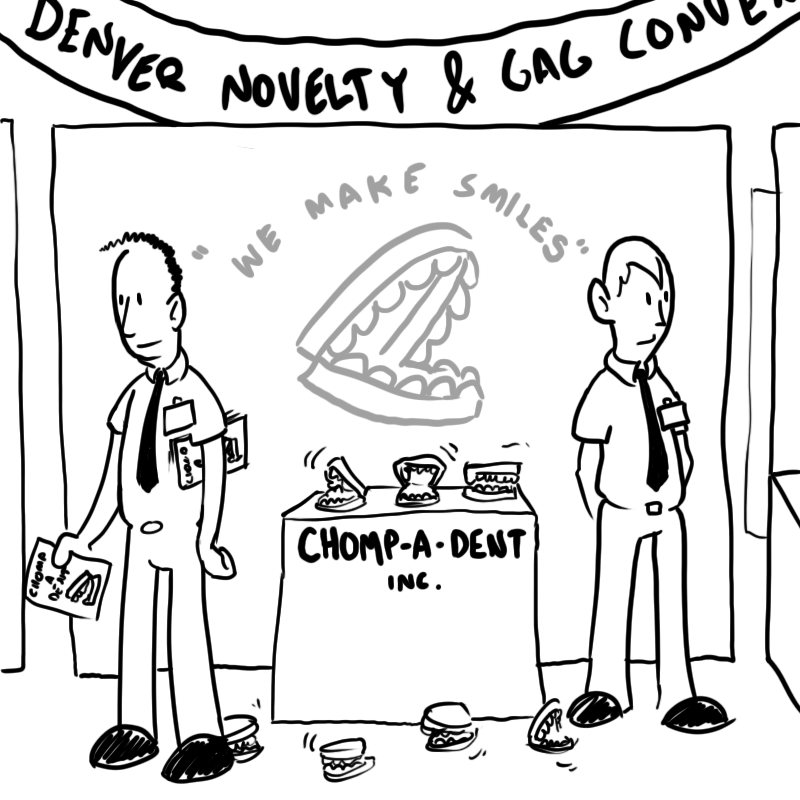 DENVER NOVELTY & GAG CONVEN
"WE MAKE SMILES"
CHOMP-A-DENT
INC.
CHOMP
A
DENT